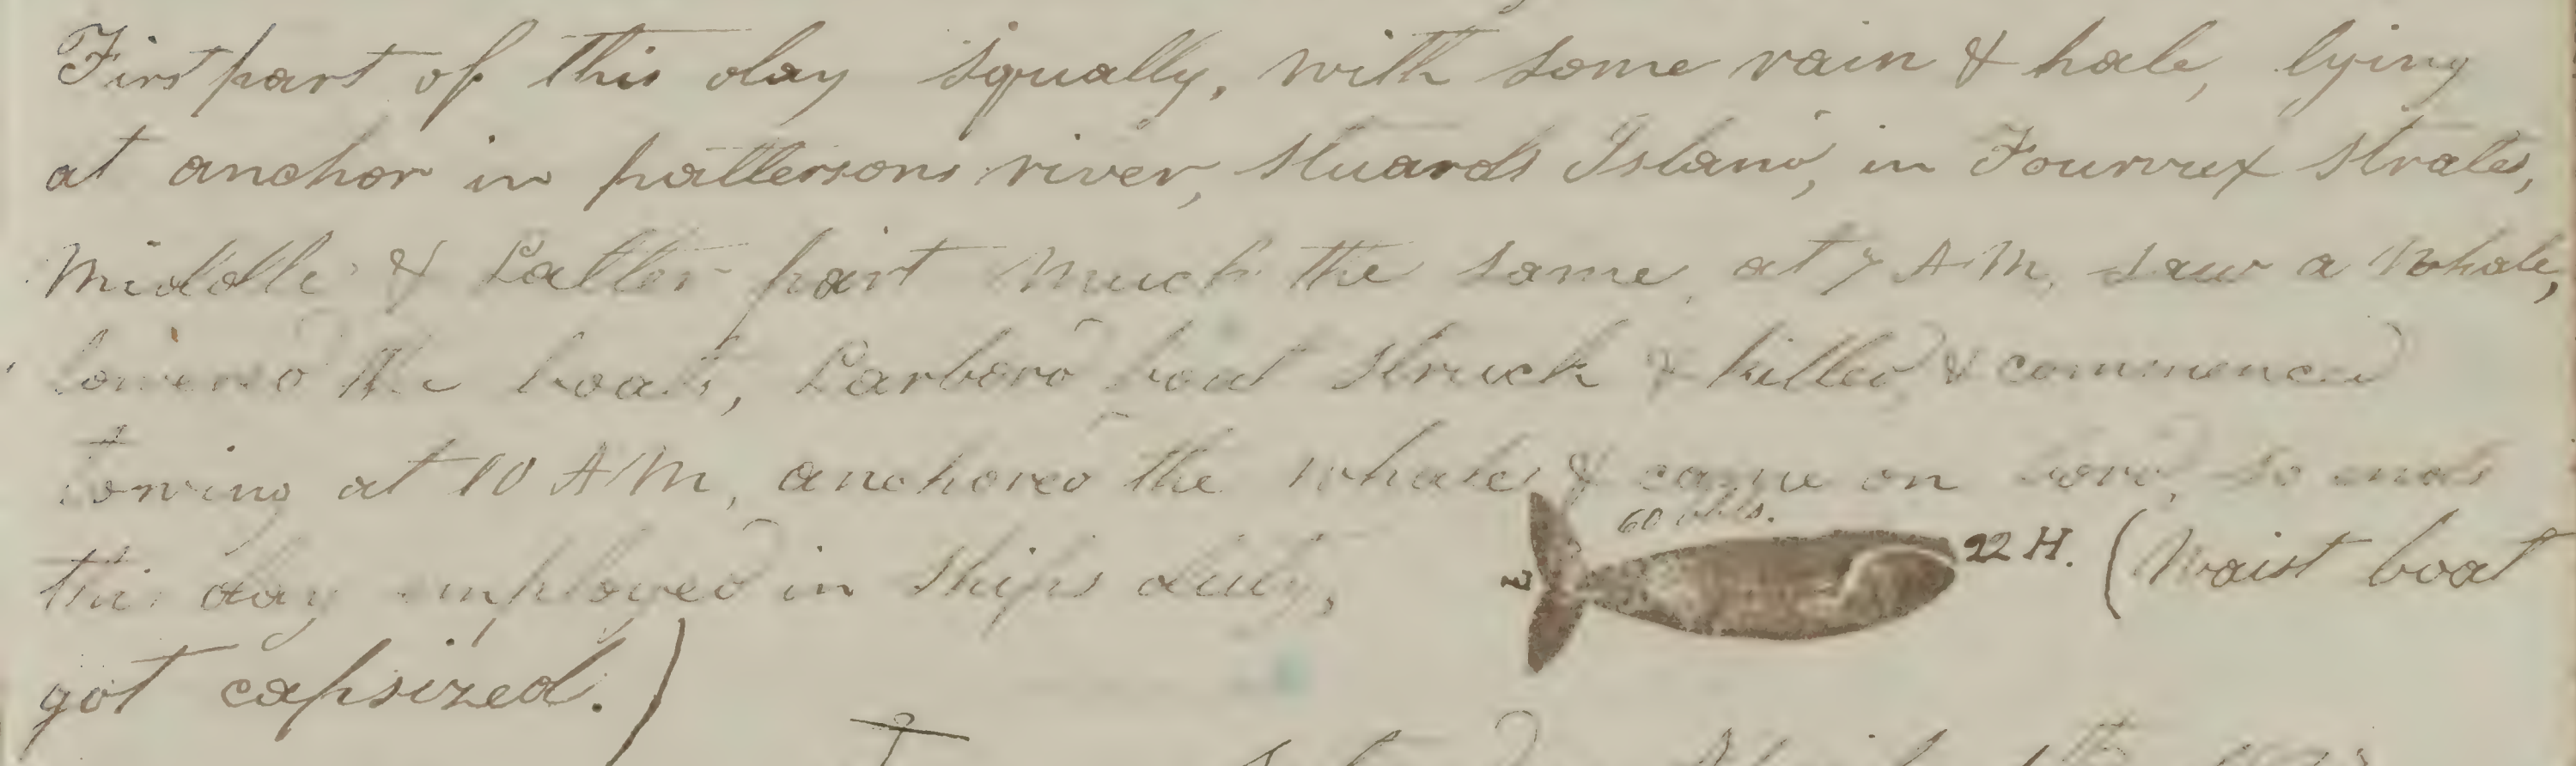 First part of this day squally, with some rain & hale, lying
at anchor in pattersons river, Stuards Island, in Fourvux Strates,
Middle & Latter part much the same, at 7 AM, saw a Whale,
lowered the boats, Larbord boat struck & killed, & commenced
towing at 10 AM, anchored the whale, & came on bord, so ends
60 bbls.
this day employed in ships duty, 22 H. (Waist boat
got capsized.)